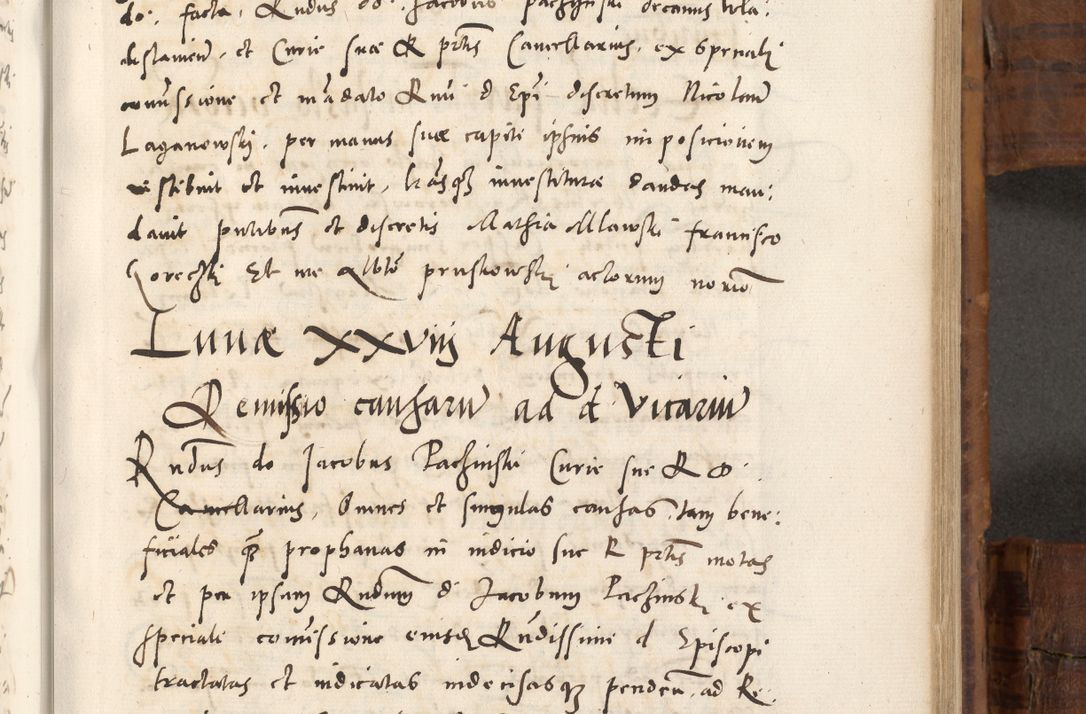 do. facta, Rndus do. Jacobus pachynski decanus vela:
et Curie sue R prtis Cancellarius, ex spetiali
comissione et madato Rmi d Epi discretum Nicolaum
Laganowski per manus sue capiti ipsius imposicionem
et investivit, lrasqz investiture dandas man:
davit putibus et discretis Mathia Mlawski francisco
Gorechki Et me Albto pruskowski actorum norio
Lunæ xxviij Augusti
Remissio causaru ad d Vicariu
Rndus do Jacobus Pachinski Curie sue R d.
Cancellarius, Omnes et singulas causas, tam bene:
ficiales qz prophanas in indicio sue R prtis motas
et per ipsum Rndum d Jacobum Pachinski ex
speciali comissione eiusdem Rndissimi d Episcopi
tractatas et indicatas indecisasqz penden. ad Re: